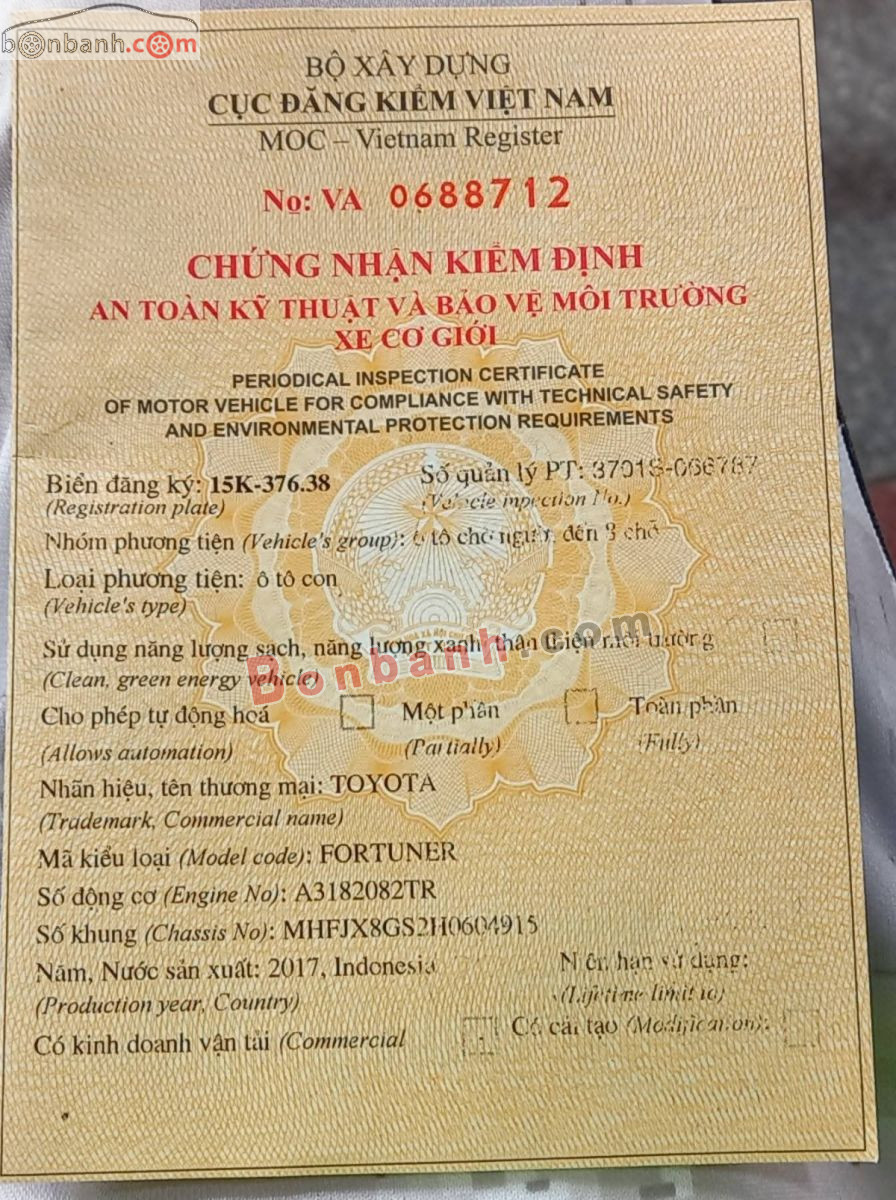 bonbanh.com
BỘ XÂY DỰNG
CỤC ĐĂNG KIỂM VIỆT NAM
MOC – Vietnam Register
No: VA 0688712
CHỨNG NHẬN KIỂM ĐỊNH
AN TOÀN KỸ THUẬT VÀ BẢO VỆ MÔI TRƯỜNG
XE CƠ GIỚI
PERIODICAL INSPECTION CERTIFICATE
OF MOTOR VEHICLE FOR COMPLIANCE WITH TECHNICAL SAFETY
AND ENVIRONMENTAL PROTECTION REQUIREMENTS
Biển đăng ký: 15K-376.38 Số quản lý PT: 3701S-066787
(Registration plate) (Vehicle inpection No.)
Nhóm phương tiện (Vehicle's group): ô tô chở người, đến 8 chỗ
Loại phương tiện: ô tô con
(Vehicle's type)
Sử dụng năng lượng sạch, năng lượng xanh, thân thiện môi trường
(Clean, green energy vehicle)
Bonbanh.com
Cho phép tự động hoá Một phần Toàn phần
(Allows automation) (Partially) (Fully)
Nhãn hiệu, tên thương mại: TOYOTA
(Trademark, Commercial name)
Mã kiểu loại (Model code): FORTUNER
Số động cơ (Engine No): A3182082TR
Số khung (Chassis No): MHFJX8GS2H0604915
Năm, Nước sản xuất: 2017, Indonesia Niên hạn sử dụng:
(Production year, Country) (Lifetime limit to)
Có kinh doanh vận tải (Commercial Có cải tạo (Modification):